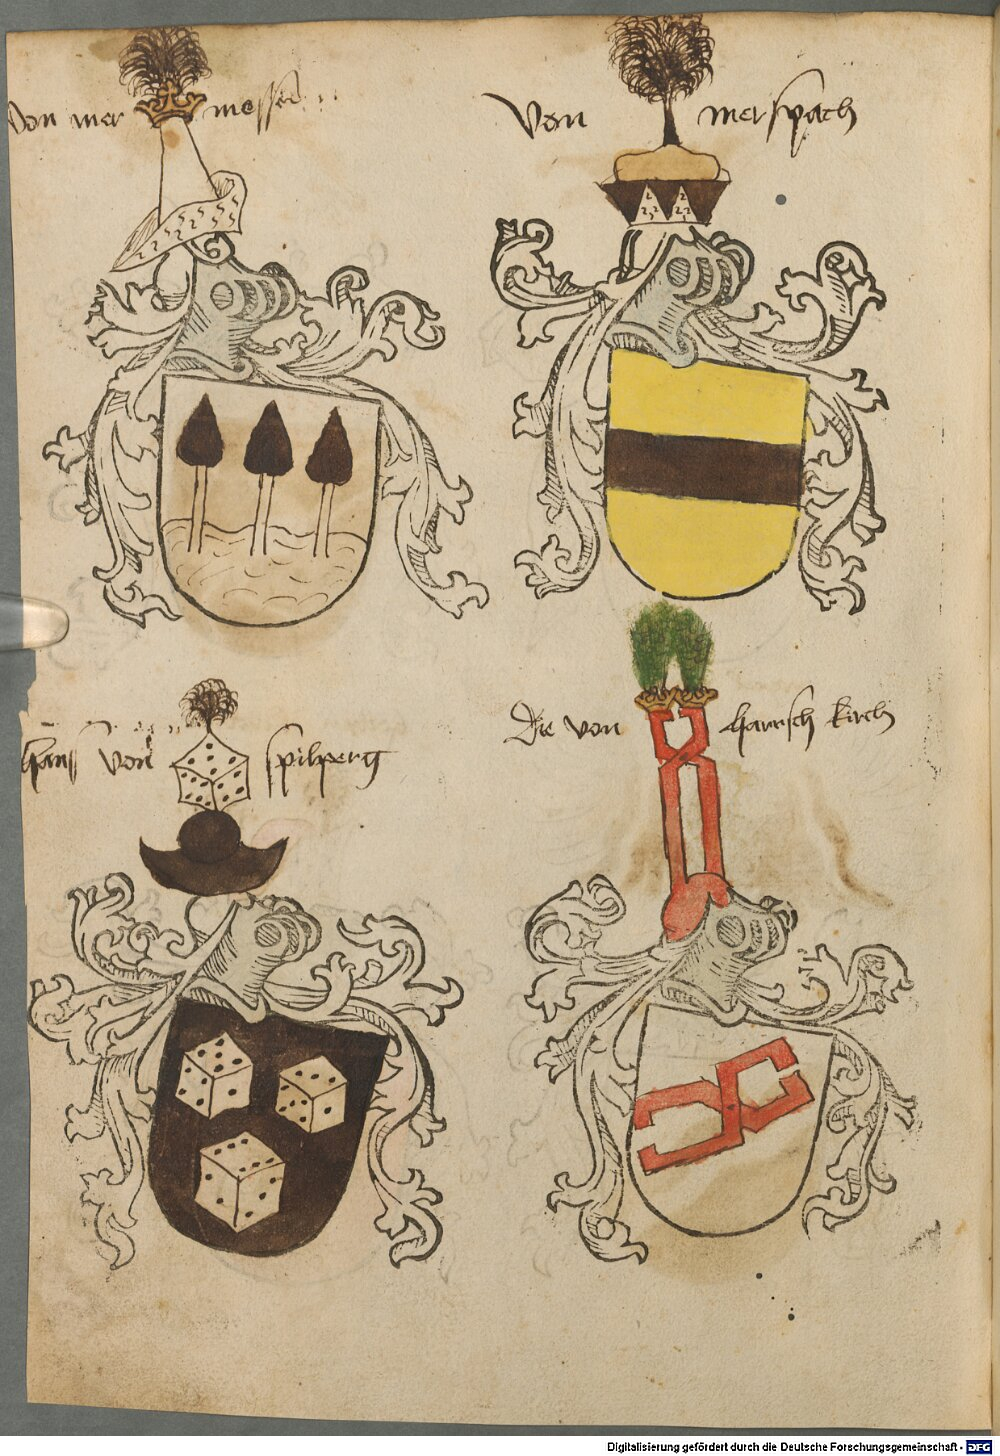 von mer mossen
Von merspach
hans von spilperg
Die von harrsch kirch
Digitalisierung gefördert durch die Deutsche Forschungsgemeinschaft - DFG